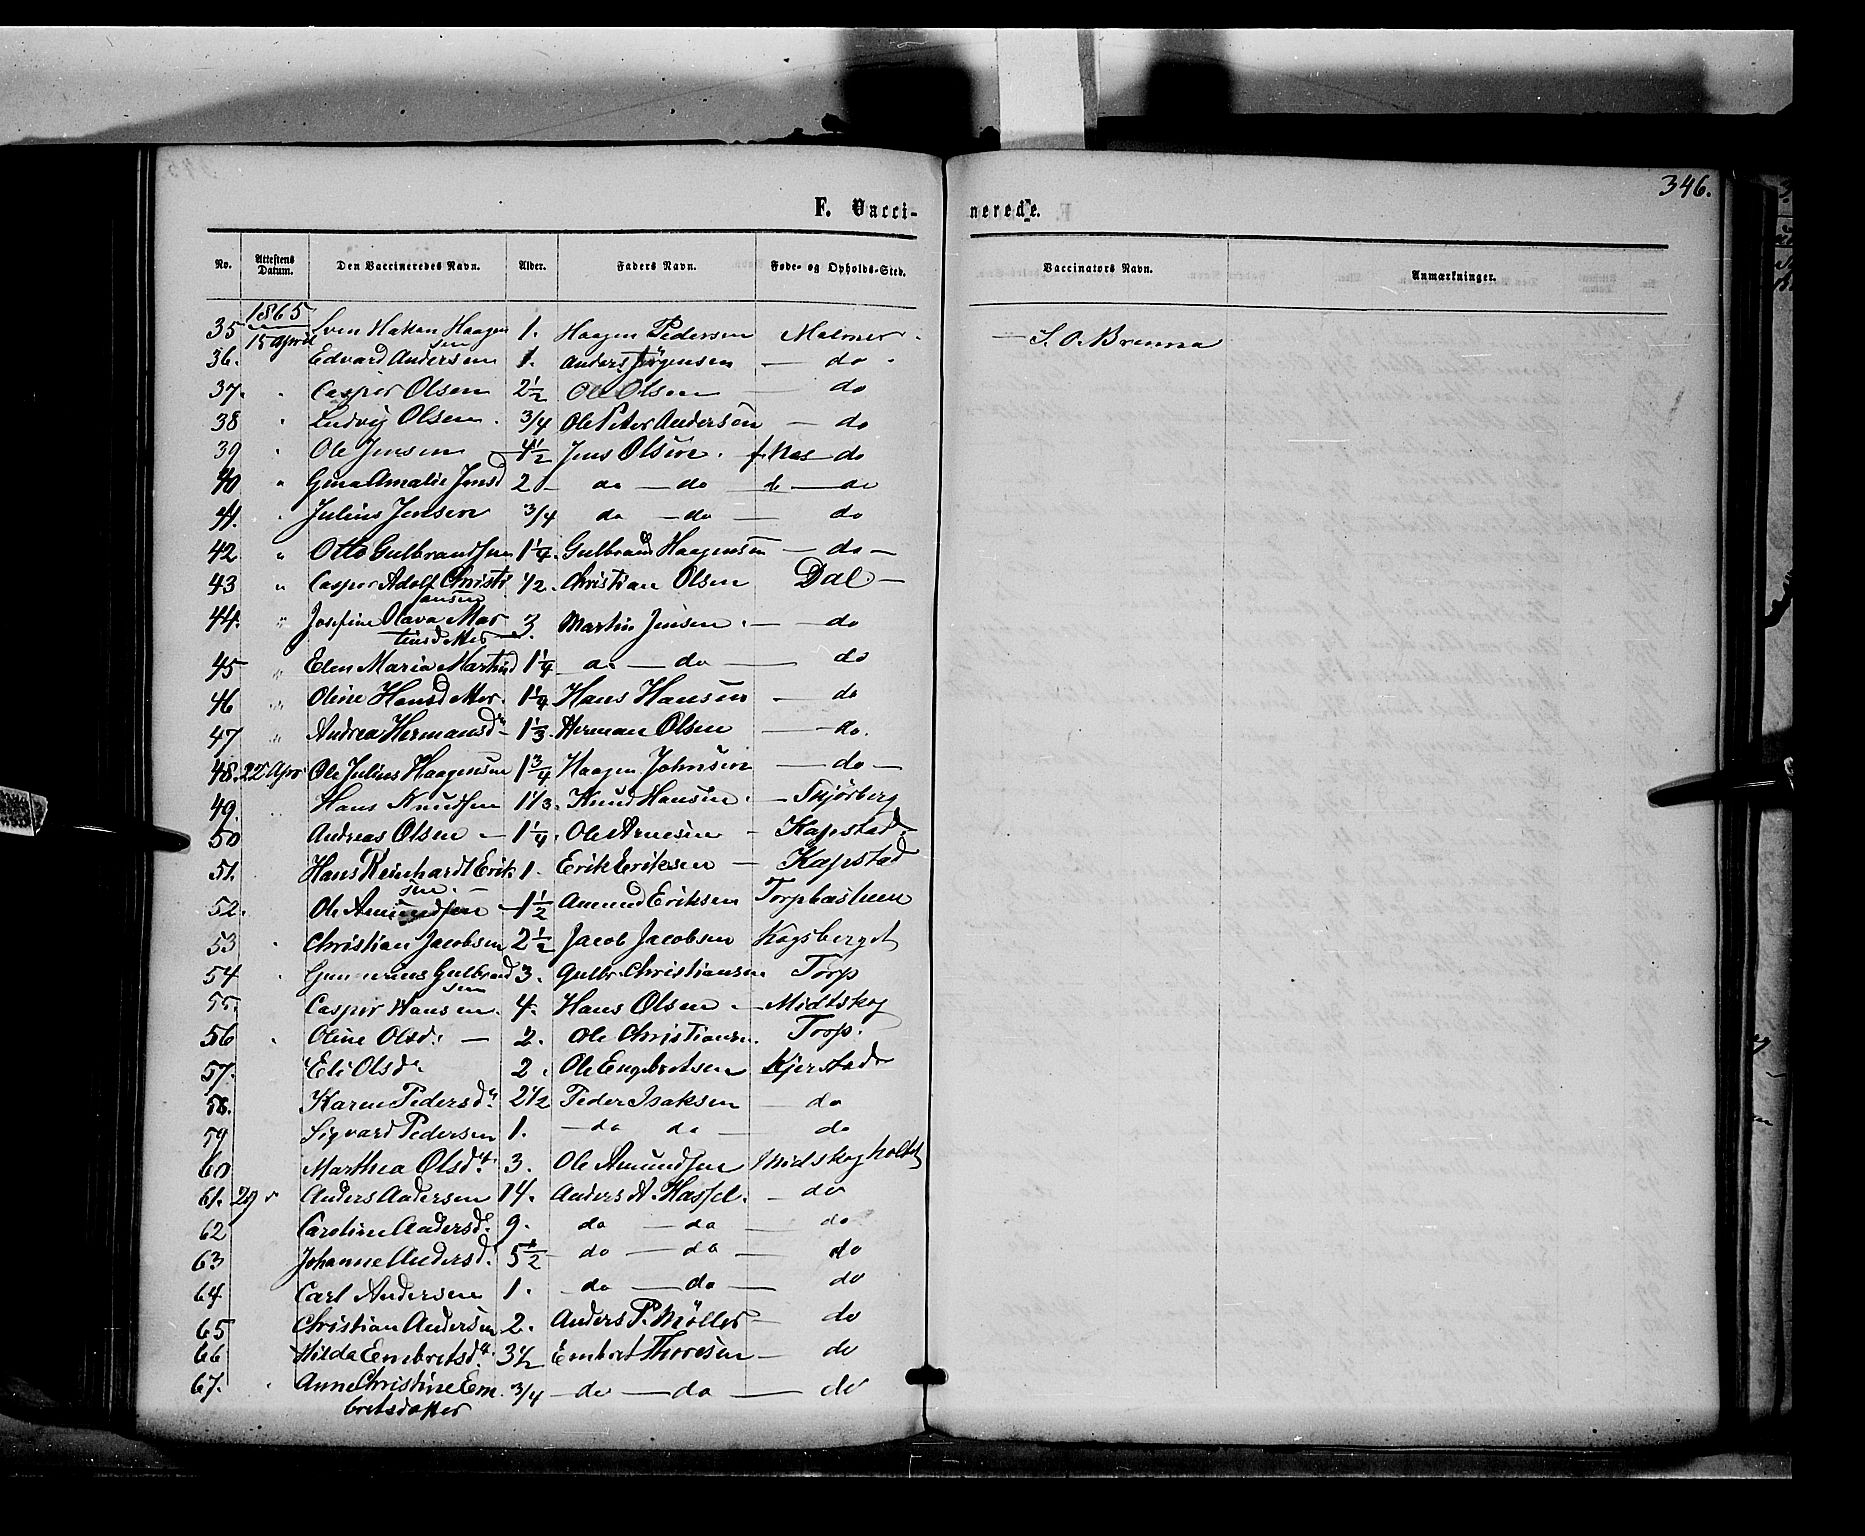 346.
F. Vaccinerede.
No. Attestens Datum. Den Vaccineredes Navn. Alder. Faders Navn. Føde- og Opholds-Sted. Vaccinators Navn. Anmærkninger.
1865
35 15 April Sven Hakan Haagen 1. Haagen Pedersen Melmer. — S. O. Brenna
sen
36. Edvard Andersen 1. Anders Jørgensen — do
37. " Casper Olsen 2½ Ole Olsen — do
38 " Ludvig Olsen. 3/4 Ole Peter Andersen — do
39 " Ole Jensen 4½ Jens Olsen. f. Næs do
40 " Gina Amalie Jensd 2 — do — do — do
41. " Julius Jensen 3/4 do — do — do
42 " Otto Gulbrandsen 1¼. Gulbrand Haagensen — do —
43 " Casper Adolf Christi 1/2. Christian Olsen Dal —
ansen
44. " Josefine Olava Mar 3. Martin Jensen. — do
tinsdatter
45 " Elen Maria Martind 1¼ — do — do
46 " Oline Hansdatter. 1¼ Hans Hansen — do
47 " Andrea Hermansdr 1⅓ Herman Olsen — do.
48. 22 Apr Ole Julius Haagensen 1¾ Haagen Johnsen — do —
49. " Hans Knudsen 1 1/3. Knud Hansen. —
50 Andreas Olsen — 1¼. Ole Arnesen — Kapstad
51. Hans Reinhardt Erik 1. Erik Eriksen — Kapstad
sen. —
52. Ole Amundsen — 1½ Amund Eriksen
53 " Christian Jacobsen 2½ Jacob Jacobsen Kogsberget
54 " Gulbrand 3. Gulbr. Christiansen. Torp
sen
55. Casper Hansen. 4. Hans Olsen — Midtskog
56 " Oline Olsd. — 2. Ole Christiansn. Torp.
57. Eli Olsdr 2. Ole Engebretsen Kjerstad
58. Karen Pedersdr 2 1/2 Peder Isaksen — do
59 Sigvard Pedersen 1. — do do — do
60 Marthea Olsdr. 3. Ole Amundsen Midskogholtet
61. 29 " Anders Andersen 14. Anders A. Hassel. — do
62 Caroline Andersd. 9. do — do — do
63 Johanne Andersd. 5½ do — do — do
64 Carl Andersen 1. do — do — do
65 Christian Andersen 2. Anders P. Møller — do
66 Hilda Embretsdr. 3½ Embret Thoresen — do
67. " Anne Christine Em 3/4 — do — do — do
bretsdatter